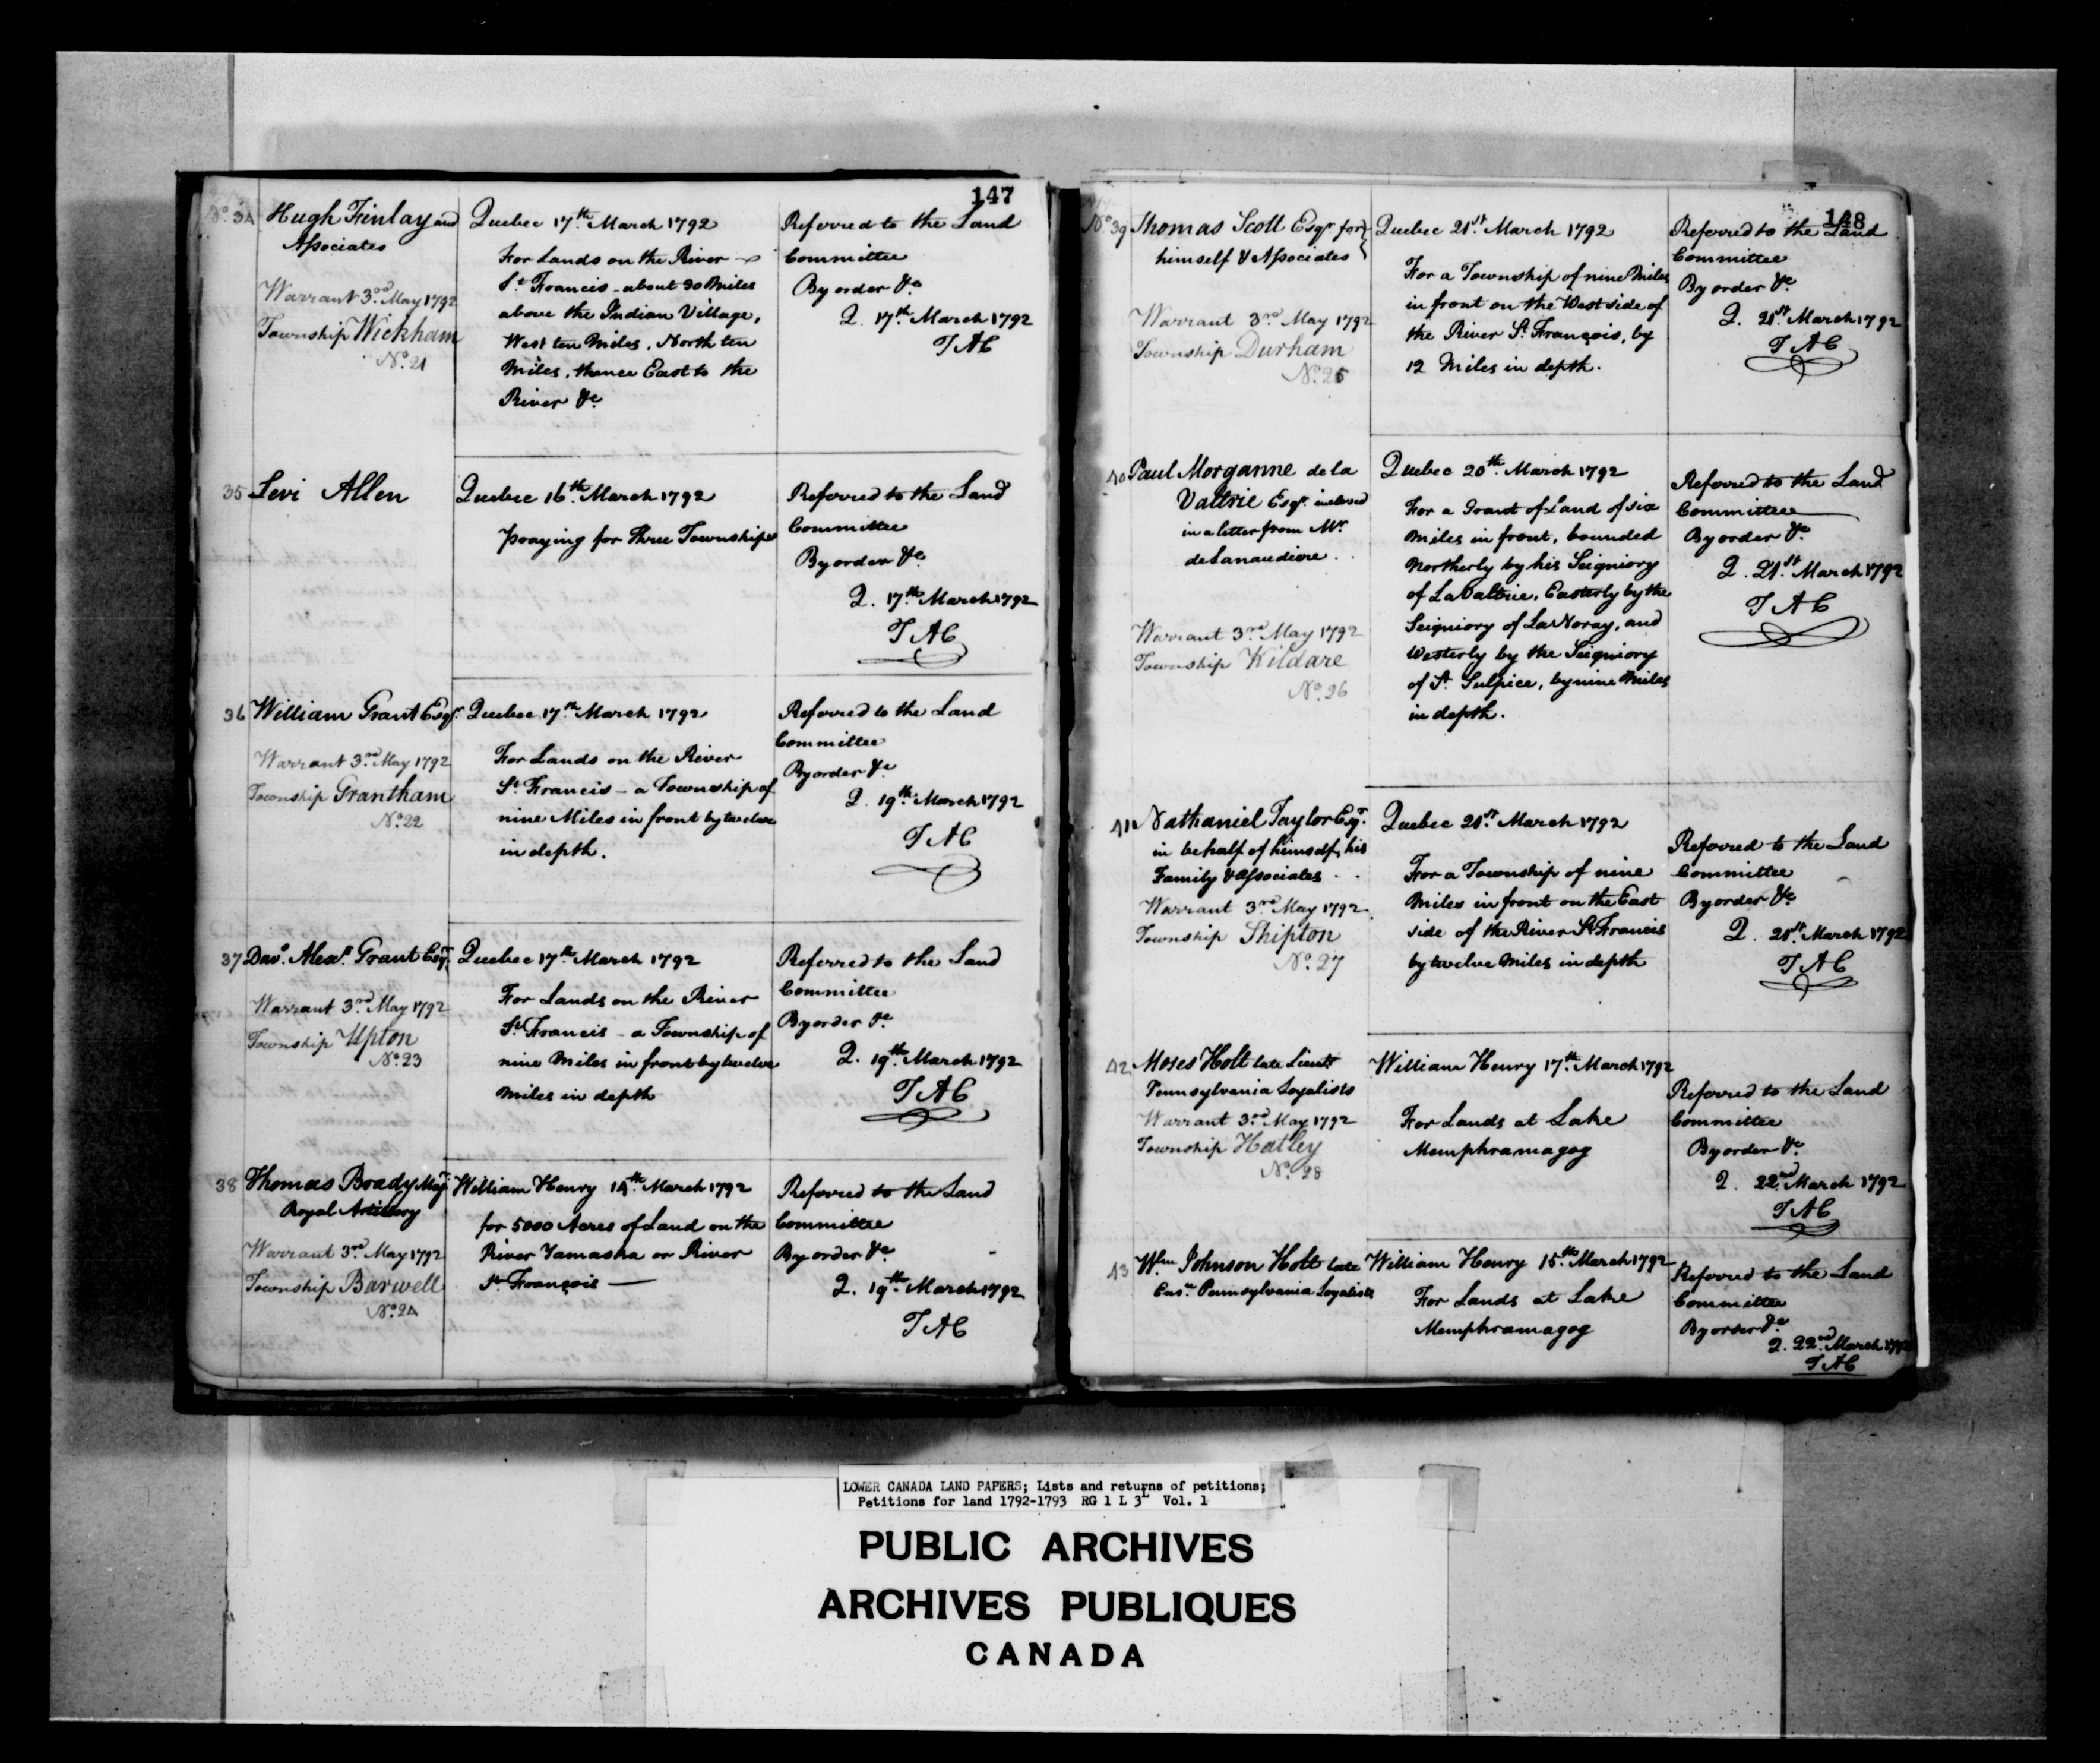 147
No. 34 Hugh Finlay and
Associates
Warrant 3rd May 1792
Township Wickham
No. 21
Quebec 17th March 1792
For Lands on the River
St Francis - about 30 Miles
above the Indian Village,
West ten Miles, North ten
Miles, thence East to the
River &c.
Referred to the Land
Committee
By order &c.
Q. 17th March 1792
TAC
35 Levi Allen
Quebec 16th March 1792
praying for three Townships
Referred to the Land
Committee
By order &c.
Q. 17th March 1792
TAC
36 William Grant Esqr.
Warrant 3rd May 1792
Township Grantham
No. 22
Quebec 17th March 1792
For Lands on the River
St Francis - a Township of
nine Miles in front by twelve
in depth.
Referred to the Land
Committee
By order &c
Q. 19th March 1792
TAC
37 Davd. Alexr. Grant Esqr.
Warrant 3rd May 1792
Township Upton
No. 23
Quebec 17th March 1792
For Lands on the River
St Francis - a Township of
nine Miles in front by twelve
Miles in depth
Referred to the Land
Committee
By order &c
Q. 19th March 1792
TAC
38 Thomas Brady Majr
Royal Artillery
Warrant 3rd May 1792
Township Barwell
No. 24
William Henry 14th March 1792
for 5000 Acres of Land on the
River Yamaska or River
St François —
Referred to the Land
Committee
By order &c
Q. 19th March 1792
TAC
148
No. 39 Thomas Scott Esqr. for
himself & Associates
Warrant 3rd May 1792
Township Durham
No. 25
Quebec 21st March 1792
For a Township of nine Miles
in front on the West side of
the River St François, by
12 Miles in depth.
Referred to the Land
Committee
By order &c
Q. 21st March 1792
TAC
40 Paul Morganne de la
Valtrie Esqr. inclosed
in a letter from Mr.
de Lanaudiere
Warrant 3rd May 1792
Township Kildare
No. 26
Quebec 20th March 1792
For a Grant of Land of six
Miles in front, bounded
Northerly by his Seigniory
of LaValtrie, Easterly by the
Seigniory of LaNoray, and
Westerly by the Seigniory
of St. Sulpice, by nine Miles
in depth.
Referred to the Land
Committee
By order &c.
Q. 21st March 1792
TAC
41 Nathaniel Taylor Esqr.
in behalf of himself, his
Family & Associates
Warrant 3rd May 1792
Township Shipton
No. 27
Quebec 21st March 1792
For a Township of nine
Miles in front on the East
side of the River St Francis
by twelve Miles in depth
Referred to the Land
Committee
By order &c
Q. 21st March 1792
TAC
42 Moses Holt late Lieut
Pennsylvania Loyalists
Warrant 3rd May 1792
Township Hatley
No. 28
William Henry 17th March 1792
For Lands at Lake
Memphramagog
Referred to the Land
Committee
By order &c
Q. 22nd March 1792
TAC
43 Wm. Johnson Holt late
Ensn Pennsylvania Loyalists
William Henry 15th March 1792
For Lands at Lake
Memphramagog
Referred to the Land
Committee
By order &c
Q. 22nd March 1792
TAC
LOWER CANADA LAND PAPERS; Lists and returns of petitions;
Petitions for land 1792-1793 RG 1 L 3L Vol. 1
PUBLIC ARCHIVES
ARCHIVES PUBLIQUES
CANADA